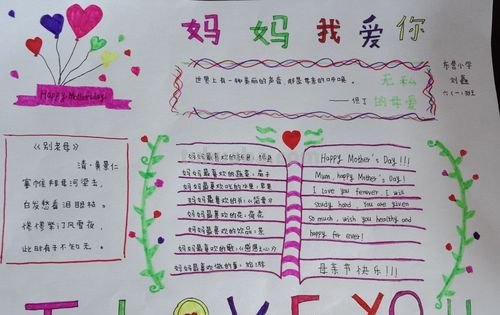 妈妈我爱你
Happy Mothersday
世界上有一种美丽的声音,那便是母亲的呼唤。
——但丁
无私
的母爱
小学
六(一)班
《别老母》
清·黄景仁
搴帷拜母河梁去,
白发愁看泪眼枯。
惨惨柴门风雪夜,
此时有子不如无。
妈妈最喜欢的
妈妈最喜欢的
妈妈最喜欢吃的水果:
妈妈最喜欢的书:《简爱》
妈妈最喜欢的花:
妈妈最喜欢的饮品:茶
妈妈最喜欢的歌:《感恩的心》
妈妈最喜欢做的事:
Happy Mother's Day!!!
Mum, happy Mother's Day!
I love you forever. I will
study hard, you are given
so much, wish you healthy and
happy for ever!
母亲节快乐!!!
I LOVE YOU